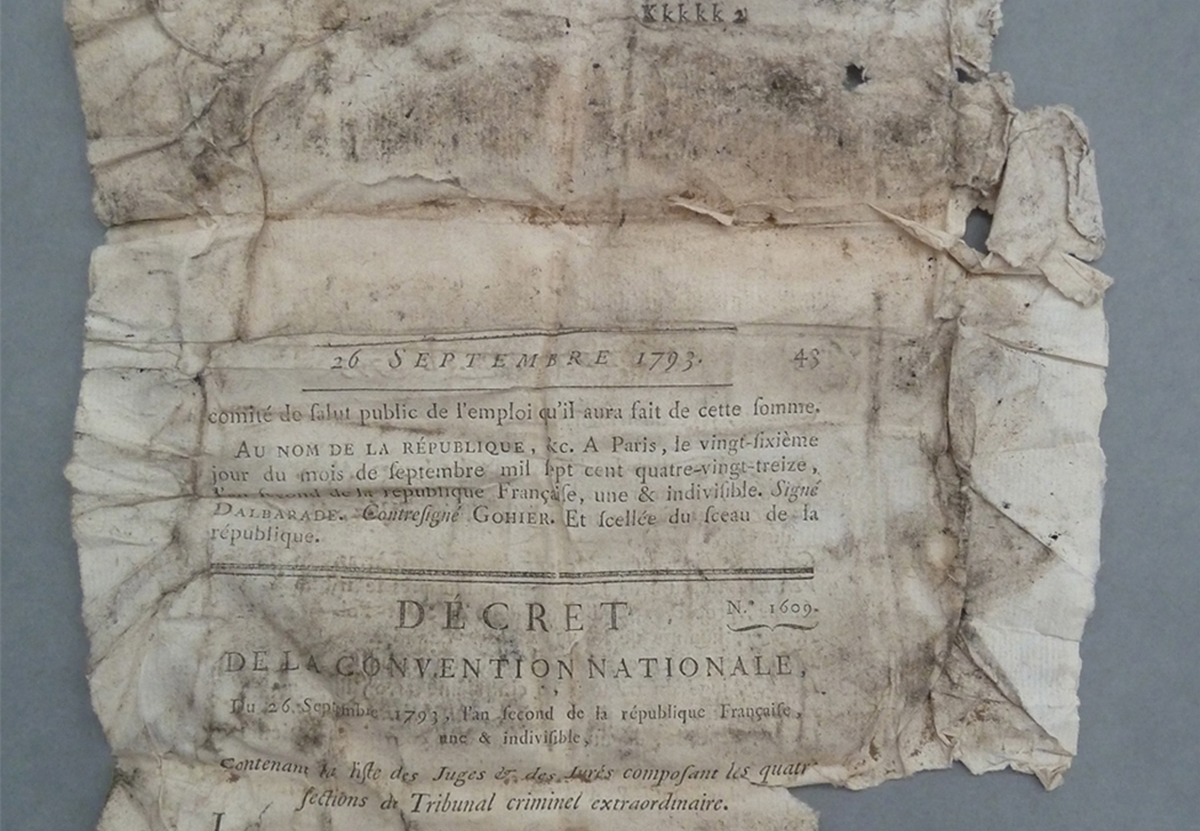 Kkkkk 2
26 SEPTEMBRE 1793. 43
comité de ſalut public de l'emploi qu'il aura fait de cette ſomme.
AU NOM DE LA RÉPUBLIQUE, &c. A Paris, le vingt-ſixième
jour du mois de ſeptembre mil ſept cent quatre-vingt-treize,
l'an ſecond de la république Françaiſe, une & indiviſible. Signé
DALBARADE. Contreſigné GOHIER. Et ſcellée du ſceau de la
république.
DÉCRET N.° 1609.
DE LA CONVENTION NATIONALE,
Du 26 Septembre 1793, l'an ſecond de la république Françaiſe,
une & indiviſible,
Contenant la liſte des Juges & des Jurés compoſant les quatre
ſections du Tribunal criminel extraordinaire.